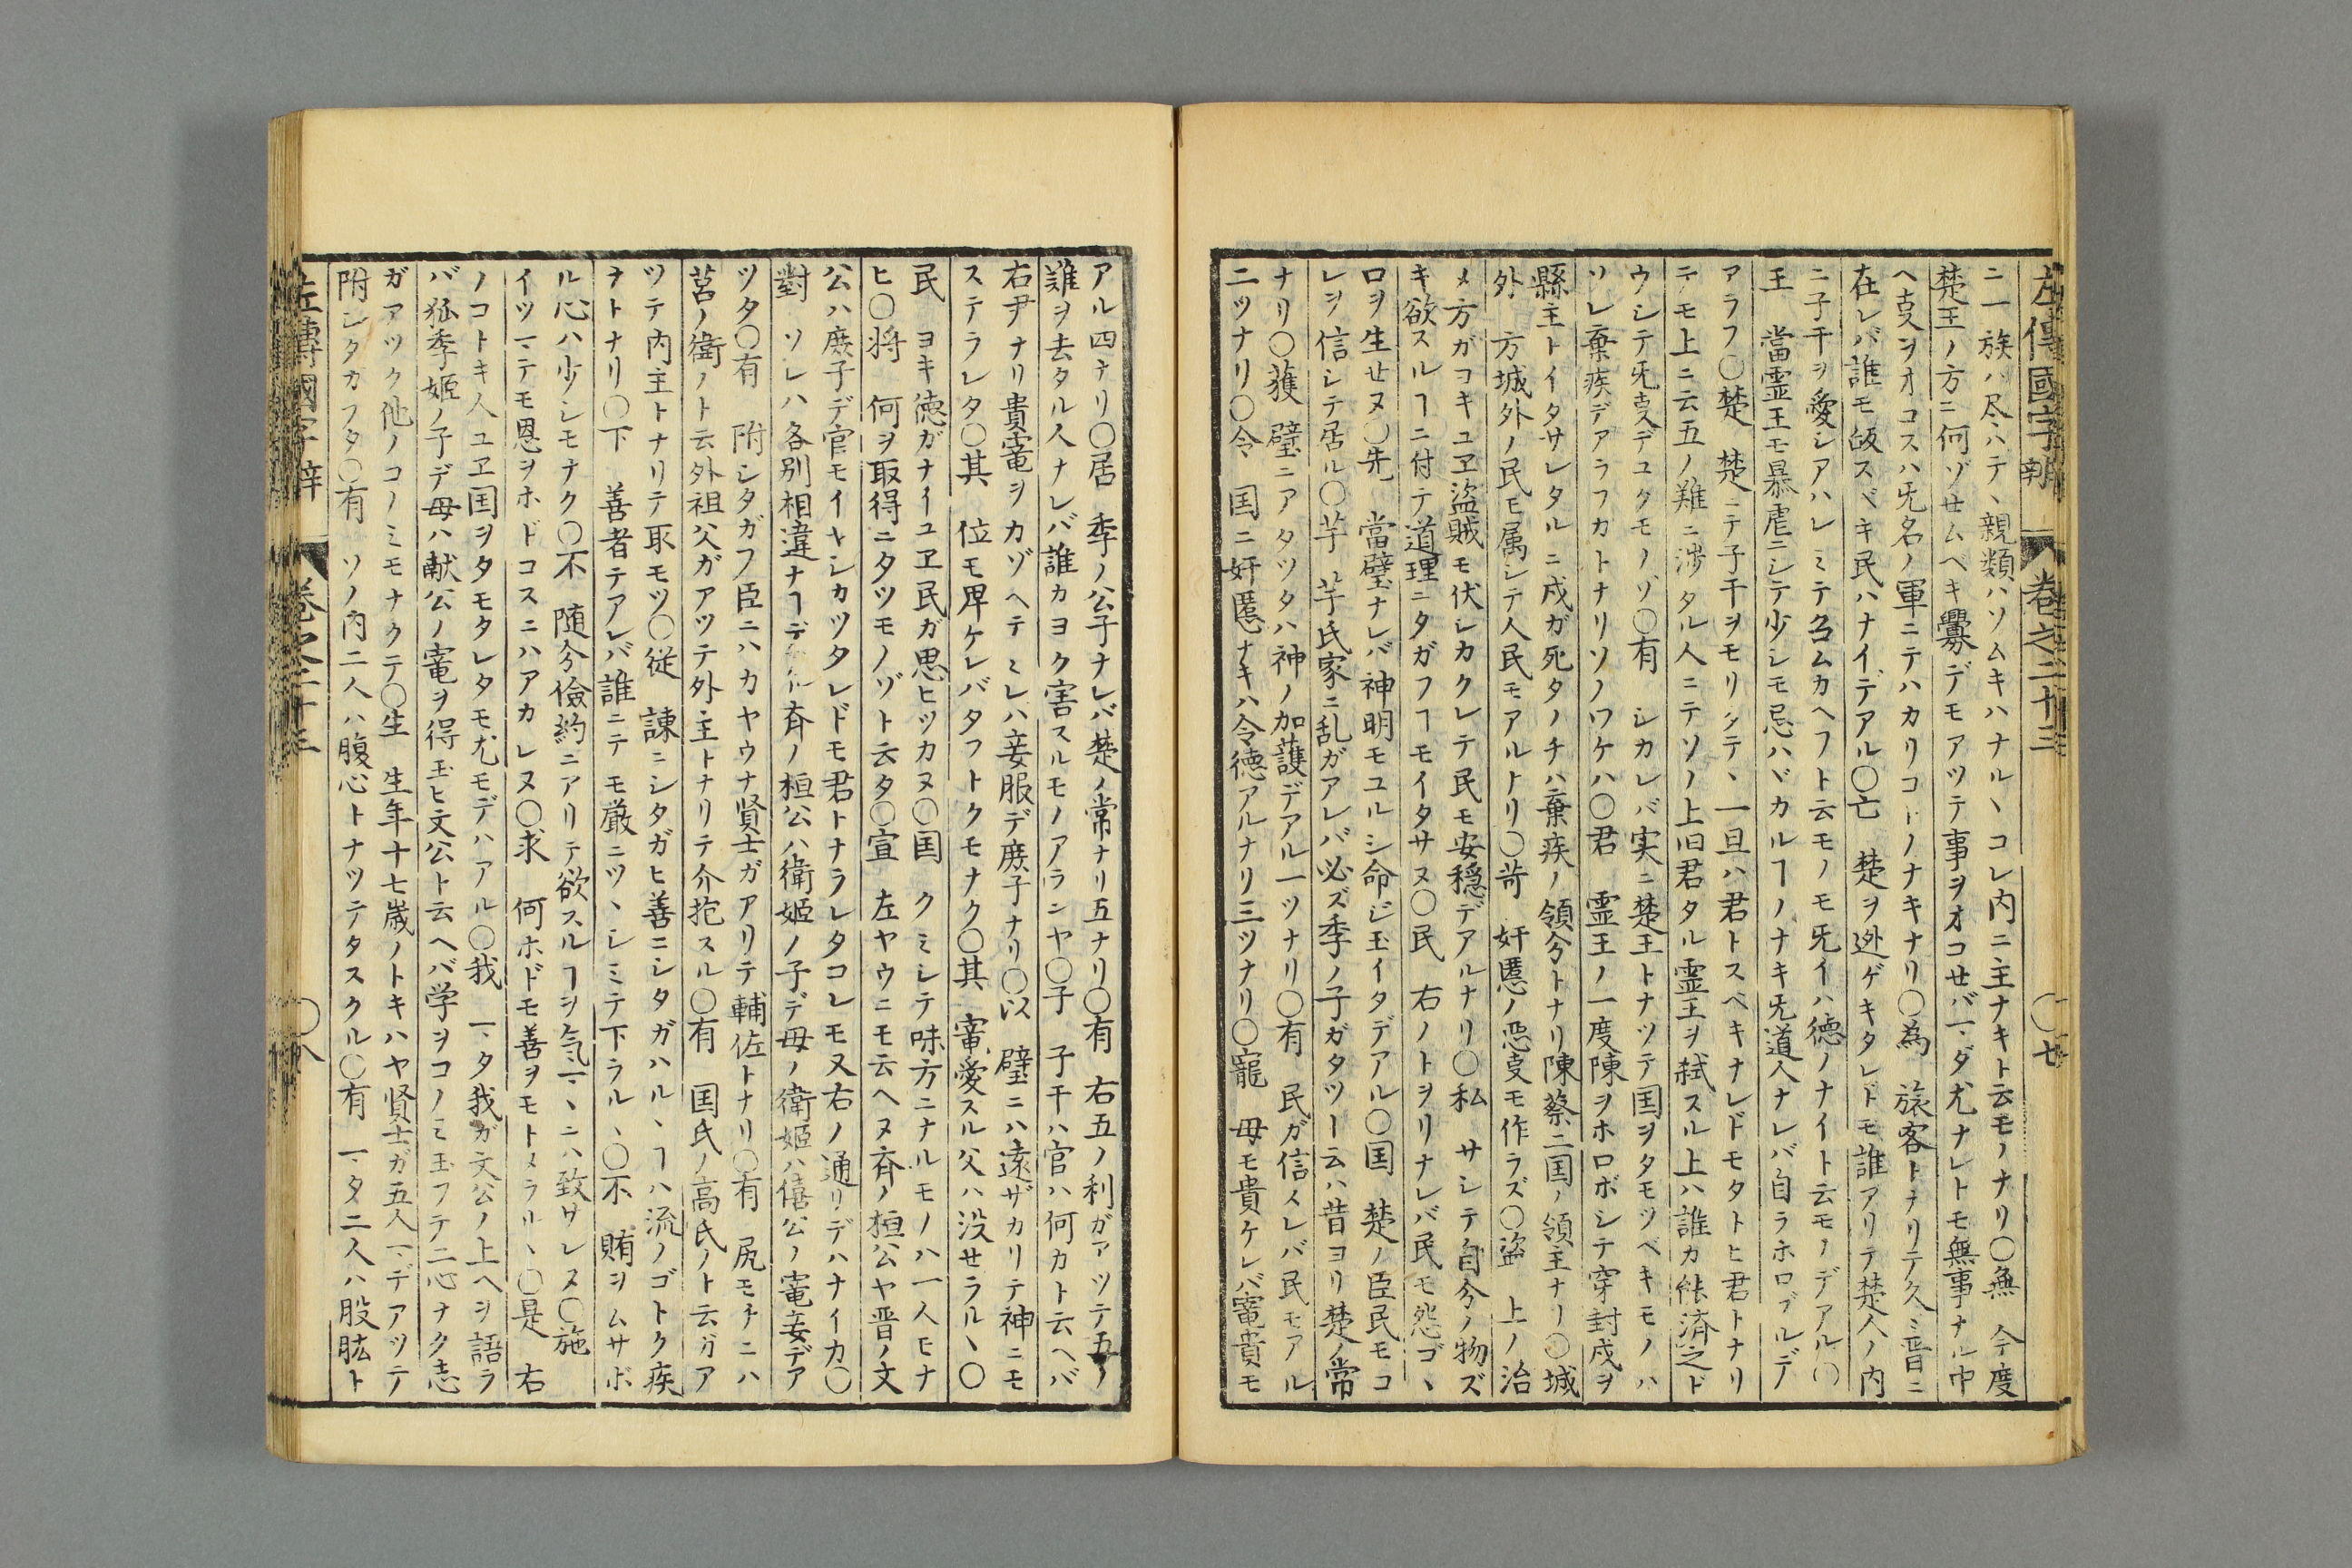 左傳國字辯 卷之二十三 〇七
ニ一族ハ尽ハテヽ親類ハソムキハナルヽコレ内ニ主ナキト云モノナリ〇無 今度
楚王ノ方ニ何ゾセムベキ釁デモアツテ事ヲオコセバマダ尤ナレトモ無事ナル中
ヘ㕝ヲオコスハ旡名ノ軍ニテハカリコトノナキナリ〇為 旅客トナリテ久ミ晋ニ
在レバ誰モ皈スベキ民ハナイデアル〇亡 楚ヲ迯ゲキタレドモ誰アリテ楚人ノ内
ニ子干ヲ愛シアハレミテ召ムカヘフト云モノモ旡イハ徳ノナイト云モノデアル〇
王 當霊王モ暴虐ニシテ少シモ忌ハヾカルヿノナキ旡道人ナレバ自ラホロブルデ
アラフ〇楚 楚ニテ子干ヲモリタテヽ一旦ハ君トスベキナレドモタトヒ君トナリ
テモ上ニ云五ノ難ニ渉タル人ニテソノ上旧君タル霊王ヲ弑スル上ハ誰カ能済之ド
ウシテ旡㕝デユクモノゾ〇有 シカレバ実ニ楚王トナツテ国ヲタモツベキモノハ
ソレ棄疾デアラフカトナリソノワケハ〇君 霊王ノ一度陳ヲホロボシテ穿封戍ヲ
縣主トイタサレタルニ戍ガ死タノチハ棄疾ノ領分トナリ陳蔡二国ノ領主ナリ〇城
外 方城外ノ民モ属シテ人民モアルトリ〇苛 奸慝ノ悪㕝モ作ラズ〇盗 上ノ治
メ方ガコキユヱ盗賊モ伏シカクレテ民モ安穏デアルナリ〇私 サシテ自分ノ物ズ
キ欲スルヿニ付テ道理ニタガフヿモイタサヌ〇民 右ノトヲリナレバ民モ怨ゴヽ
ロヲ生セヌ〇先 當璧ナレバ神明モユルシ命ジ玉イタデアル〇国 楚ノ臣民モコ
レヲ信シテ居ル〇芋 芋氏家ニ乱ガアレバ必ズ季ノ子ガタツト云ハ昔ヨリ楚ノ常
ナリ〇獲 璧ニアタツタハ神ノ加護デアル一ツナリ〇有 民ガ信スレバ民モアル
二ツナリ〇令 国ニ奸慝ナキハ令徳アルナリ三ツナリ〇寵 母モ貴ケレバ寵貴モ
アル四ナリ〇居 季ノ公子ナレバ楚ノ常ナリ五ナリ〇有 右五ノ利ガアツテ五ノ
誰ヲ去タル人ナレバ誰カヨク害スルモノアランヤ〇子 子干ハ官ハ何カト云ヘバ
右尹ナリ貴寵ヲカゾヘテミレハ妾服デ庶子ナリ〇以 璧ニハ遠ザカリテ神ニモ
ステラレタ〇其 位モ卑ケレバタフトクモナク〇其 寵愛スル父ハ没セラルヽ〇
民 ヨキ徳ガナイユヱ民ガ思ヒツカヌ〇国 クミシテ味方ニナルモノハ一人モナ
ヒ〇将 何ヲ取得ニタツモノゾト云タ〇宣 左ヤウニモ云ヘヌ斉ノ桓公ヤ晋ノ文
公ハ庶子デ官モイヤシカツタレドモ君トナラレタコレモ又右ノ通リデハナイカ〇
對 ソレハ各別相違ナヿデ 斉ノ桓公ハ衛姫ノ子デ母ノ衛姫ハ僖公ノ寵妾デア
ツタ〇有 附シタガフ臣ニハカヤウナ賢士ガアリテ輔佐トナリ〇有 尻モチニハ
莒ノ衛ノト云外祖父ガアツテ外主トナリテ介抱スル〇有 国氏ノ高氏ノト云ガア
ツテ内主トナリテ取モツ〇従 諫ニシタガヒ善ニシタガハルヽヿハ流ノゴトク疾
ヲトナリ〇下 善者テアレバ誰ニテモ厳ニツヽシミテ下ラルヽ〇不 賄ヲムサボ
ル心ハ少シモナク〇不 随分倹約ニアリテ欲スルヿヲ気マヽニハ致サレヌ〇施
イツマテモ恩ヲホドコスニハアカレヌ〇求 何ホドモ善ヲモトメラルヽ〇是 右
ノコトキ人ユヱ国ヲタモタレタモ尤モデハアル〇我 マタ我ガ文公ノ上ヘヲ語ラ
バ狐季姫ノ子デ母ハ献公ノ寵ヲ得玉ヒ文公ト云ヘバ学ヲコノミ玉フテ二心ナク志
ガアツク他ノコノミモナクテ〇生 生年十七歳ノトキハヤ賢士ガ五人マデアツテ
附シタカフタ〇有 ソノ内二人ハ腹心トナツテタスクル〇有 マタ二人ハ股肱ト
左傳國字辯 卷之二十三 〇八